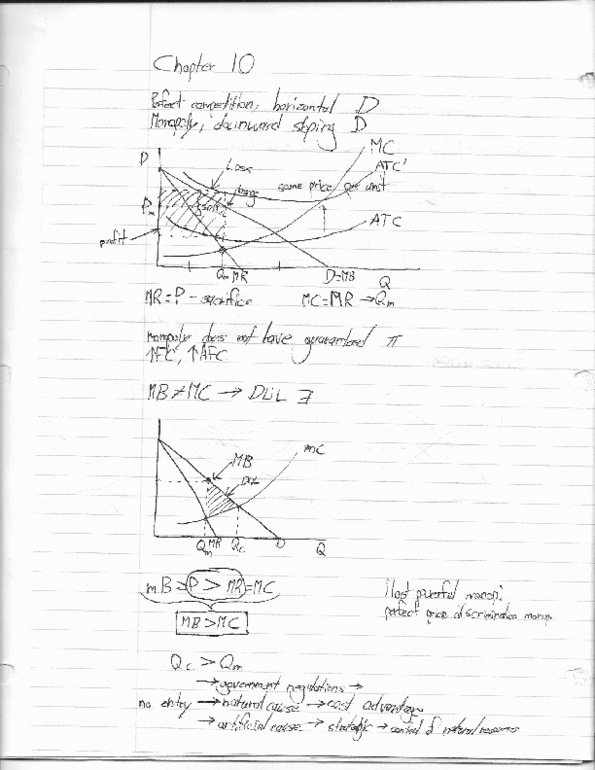 Chapter 10
Perfect competition: horizontal D
Monopoly; downward sloping D
P
MC
Loss
ATC'
same price per unit
Pm
ATC
profit
Qm MR D=MB Q
MR = P - sacrifice MC=MR → Qm
monopoly does not have guaranteed π
↑FC, ↑AFC
MB ≠ MC → DWL ∃
MC
MB
DWL
Qm MR Qc D Q
MB = P > MR = MC
Most powerful monop:
perfect price discrimination monop.
MB > MC
Qc > Qm
→ government regulations →
no entry → natural cause → cost advantage
→ artificial cause → strategic → control of natural resources